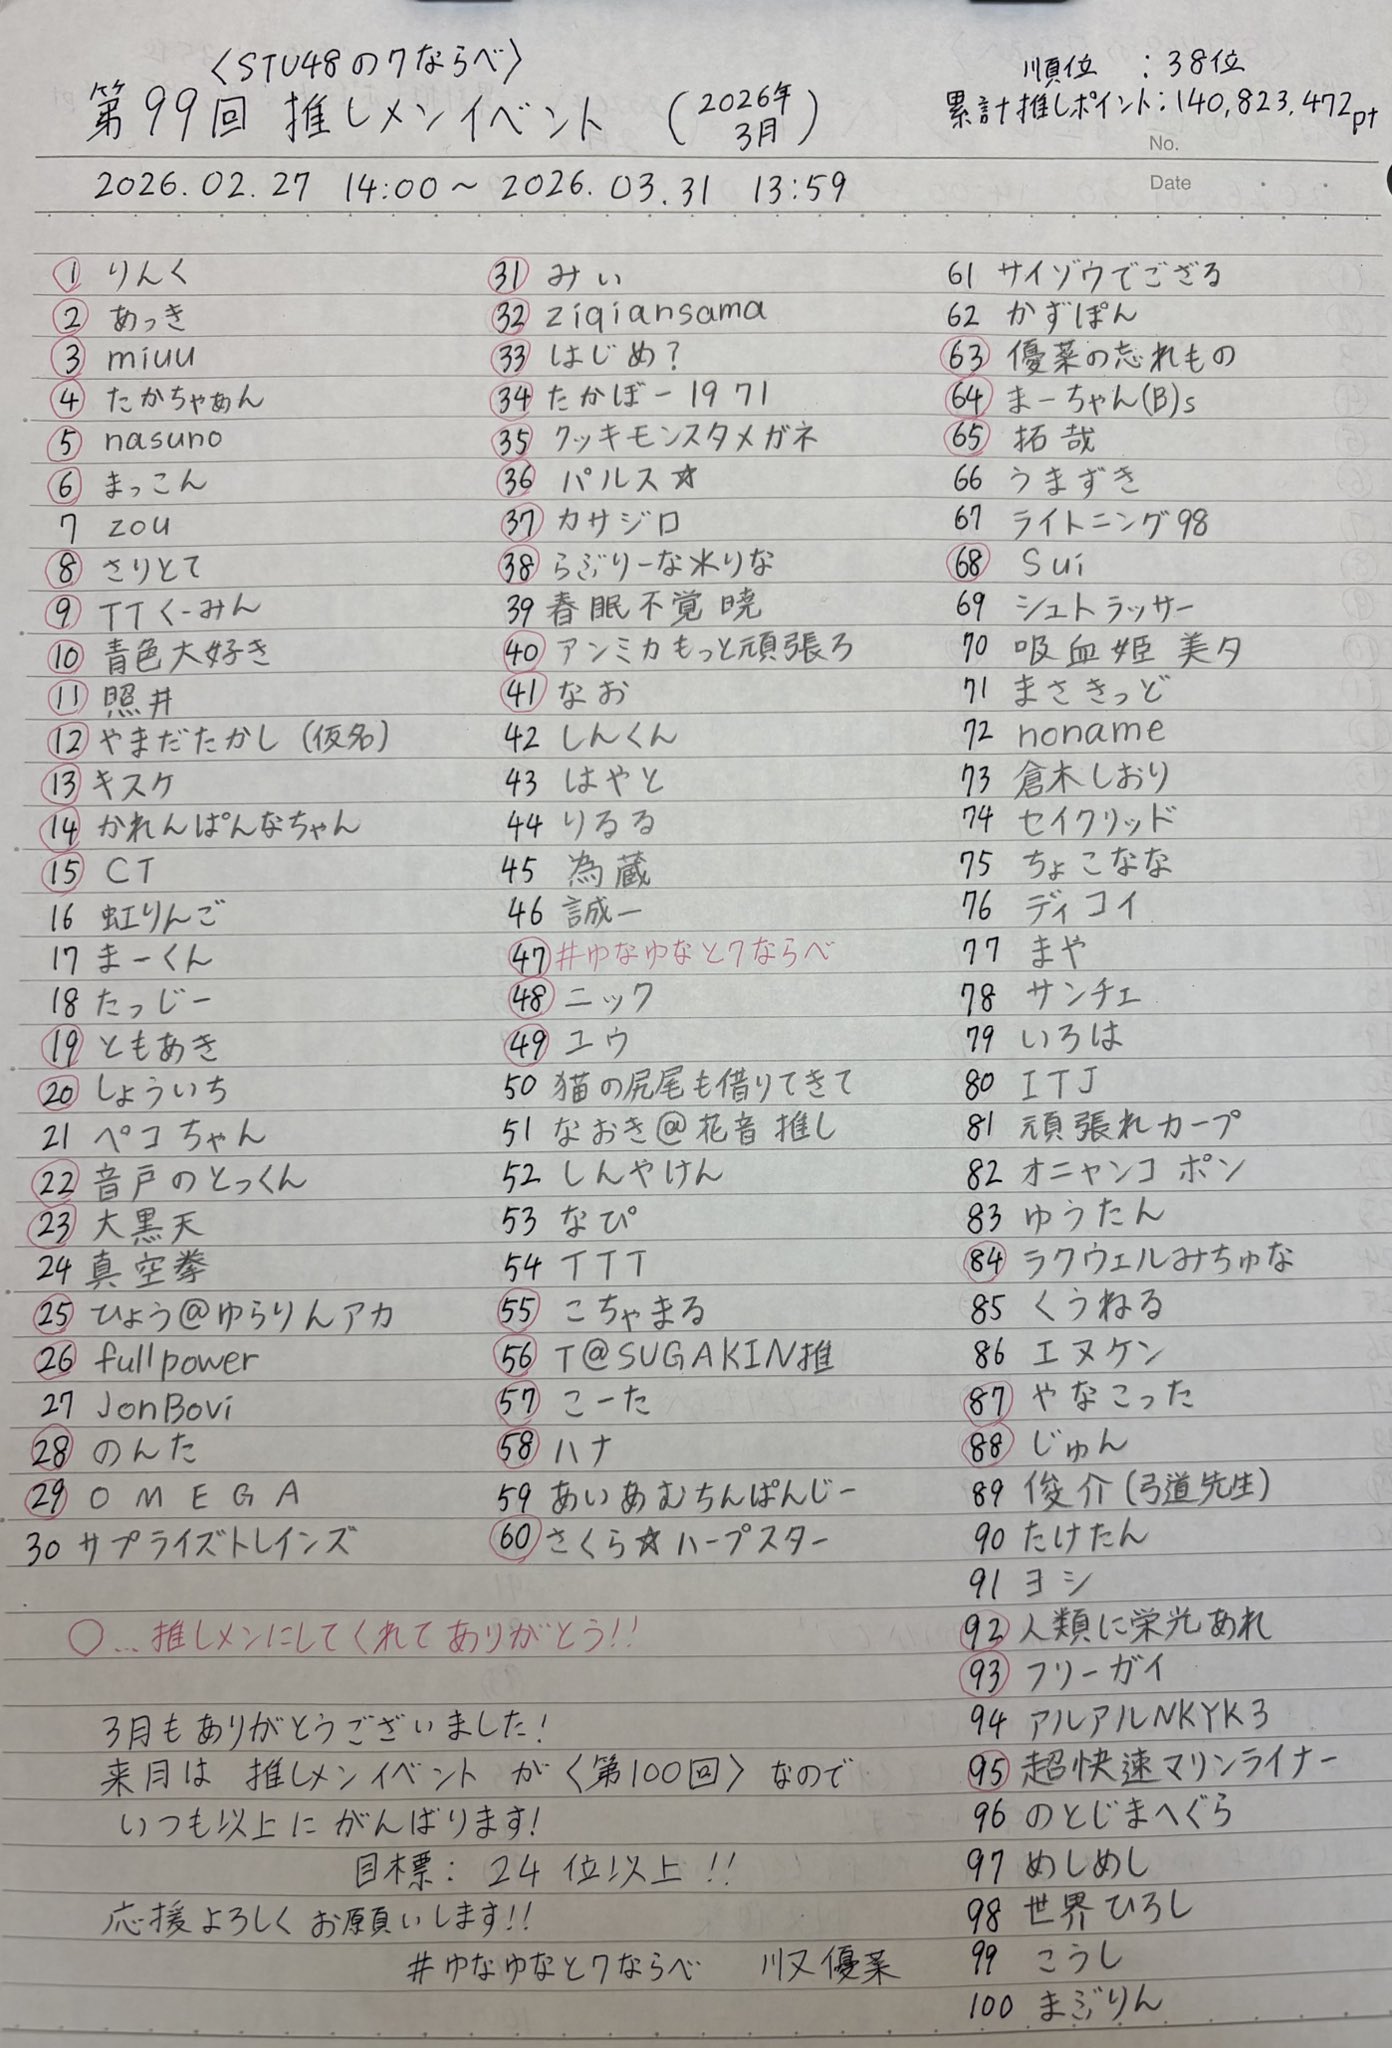 〈STU48の7ならべ〉
第99回 推しメンイベント (2026年3月)
順位 : 38位
累計推しポイント:140,823,472pt
No.
Date
2026.02.27 14:00～2026.03.31 13:59
1 りんく
2 あっき
3 miuu
4 たかちゃぁん
5 nasuno
6 まっこん
7 zou
8 さりとて
9 TTくーみん
10 青色大好き
11 照井
12 やまだたかし(仮名)
13 キスケ
14 かれんぱんなちゃん
15 CT
16 虹りんご
17 まーくん
18 たっじー
19 ともあき
20 しょういち
21 ペコちゃん
22 音戸のとっくん
23 大黒天
24 真空拳
25 ひょう@ゆらりんアカ
26 fullpower
27 JonBovi
28 のんた
29 OMEGA
30 サプライズトレインズ
31 みぃ
32 ziqiansama
33 はじめ?
34 たかぼー1971
35 クッキモンスタメガネ
36 パルス☆
37 カサジロ
38 らぶりーな氷りな
39 春眠不覚暁
40 アンミカもっと頑張ろ
41 なお
42 しんくん
43 はやと
44 りるる
45 為蔵
46 誠一
47 #ゆなゆなと7ならべ
48 ニック
49 ユウ
50 猫の尻尾も借りてきて
51 なおき@花音推し
52 しんやけん
53 なぴ
54 TTT
55 こちゃまる
56 T@SUGAKIN推
57 こーた
58 ハナ
59 あいあむちんぱんじー
60 さくら☆ハープスター
61 サイゾウでござる
62 かずぽん
63 優菜の忘れもの
64 まーちゃん(B)s
65 拓哉
66 うまずき
67 ライトニング98
68 Sui
69 シュトラッサー
70 吸血姫 美夕
71 まさきっど
72 noname
73 倉木しおり
74 セイクリッド
75 ちょこなな
76 ディコイ
77 まや
78 サンチェ
79 いろは
80 ITJ
81 頑張れカープ
82 オニャンコポン
83 ゆうたん
84 ラクウェルみちゅな
85 くうねる
86 エヌケン
87 やなこった
88 じゅん
89 俊介(弓道先生)
90 たけたん
91 ヨシ
92 人類に栄光あれ
93 フリーガイ
94 アルアルNKYK3
95 超快速マリンライナー
96 のとじまへぐら
97 めしめし
98 世界ひろし
99 こうし
100 まぶりん
○…推しメンにしてくれてありがとう!!
3月もありがとうございました!
来月は 推しメンイベント が〈第100回〉なので
いつも以上にがんばります!
目標: 24位以上!!
応援よろしくお願いします!!
#ゆなゆなと7ならべ 川又優菜